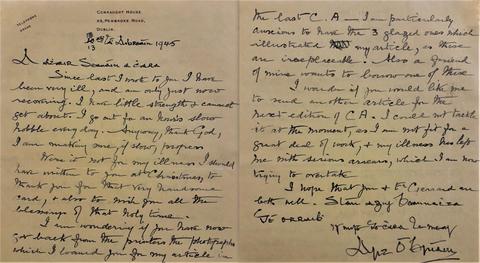 CONNAUGHT HOUSE,
63, PEMBROKE ROAD,
DUBLIN.
TELEPHONE
13 1945
A
Since last I wrote to you I have
been very ill, and am only just now
recovering. I have little strength & cannot
get about. I go out for an hour's slow
hobble every day. Anyhow, thank God,
I am making some, if slow, progress
Were it not for my illness I should
have written to you at Christmas, to
thank you for that very handsome
card, & also to wish you all the
blessings of that holy time.
I am wondering if you have now
got back from the printers the photographs
which I loaned you for my article in
the last C.A – I am particularly
anxious to have the 3 glazed ones which
illustrated my article, as these
are irreplaceable. Also a friend
of mine wants to borrow one of these
I wonder if you would like me
to send another article for the
next edition of C.A. I could not tackle
it at the moment, as I am not fit for a
great deal of work, & my illness has left
me with serious arrears, which I am now
trying to overtake
I hope that you & Gerrard are
both well.